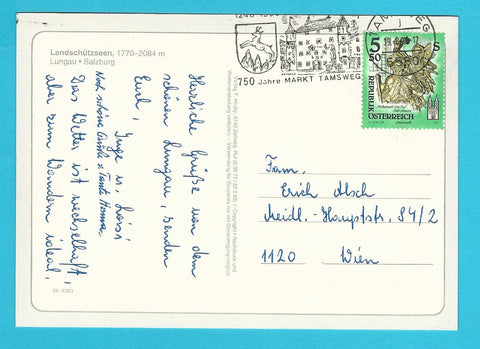 Landschützseen, 1770-2084 m
Lungau • Salzburg
Herzliche Grüße von dem
schönen Lungau, senden
Euch,
Inge u. Loisi
Noch schöne Grüße v. Tante Hanna.
Das Wetter ist wechselhaft,
aber zum Wandern ideal.
Nr. 6303
750 Jahre MARKT TAMSWEG
5 S
50
REPUBLIK
ÖSTERREICH
Fam.
Erich Alsch
Meidl.-Hauptstr. 84/2
1120 Wien